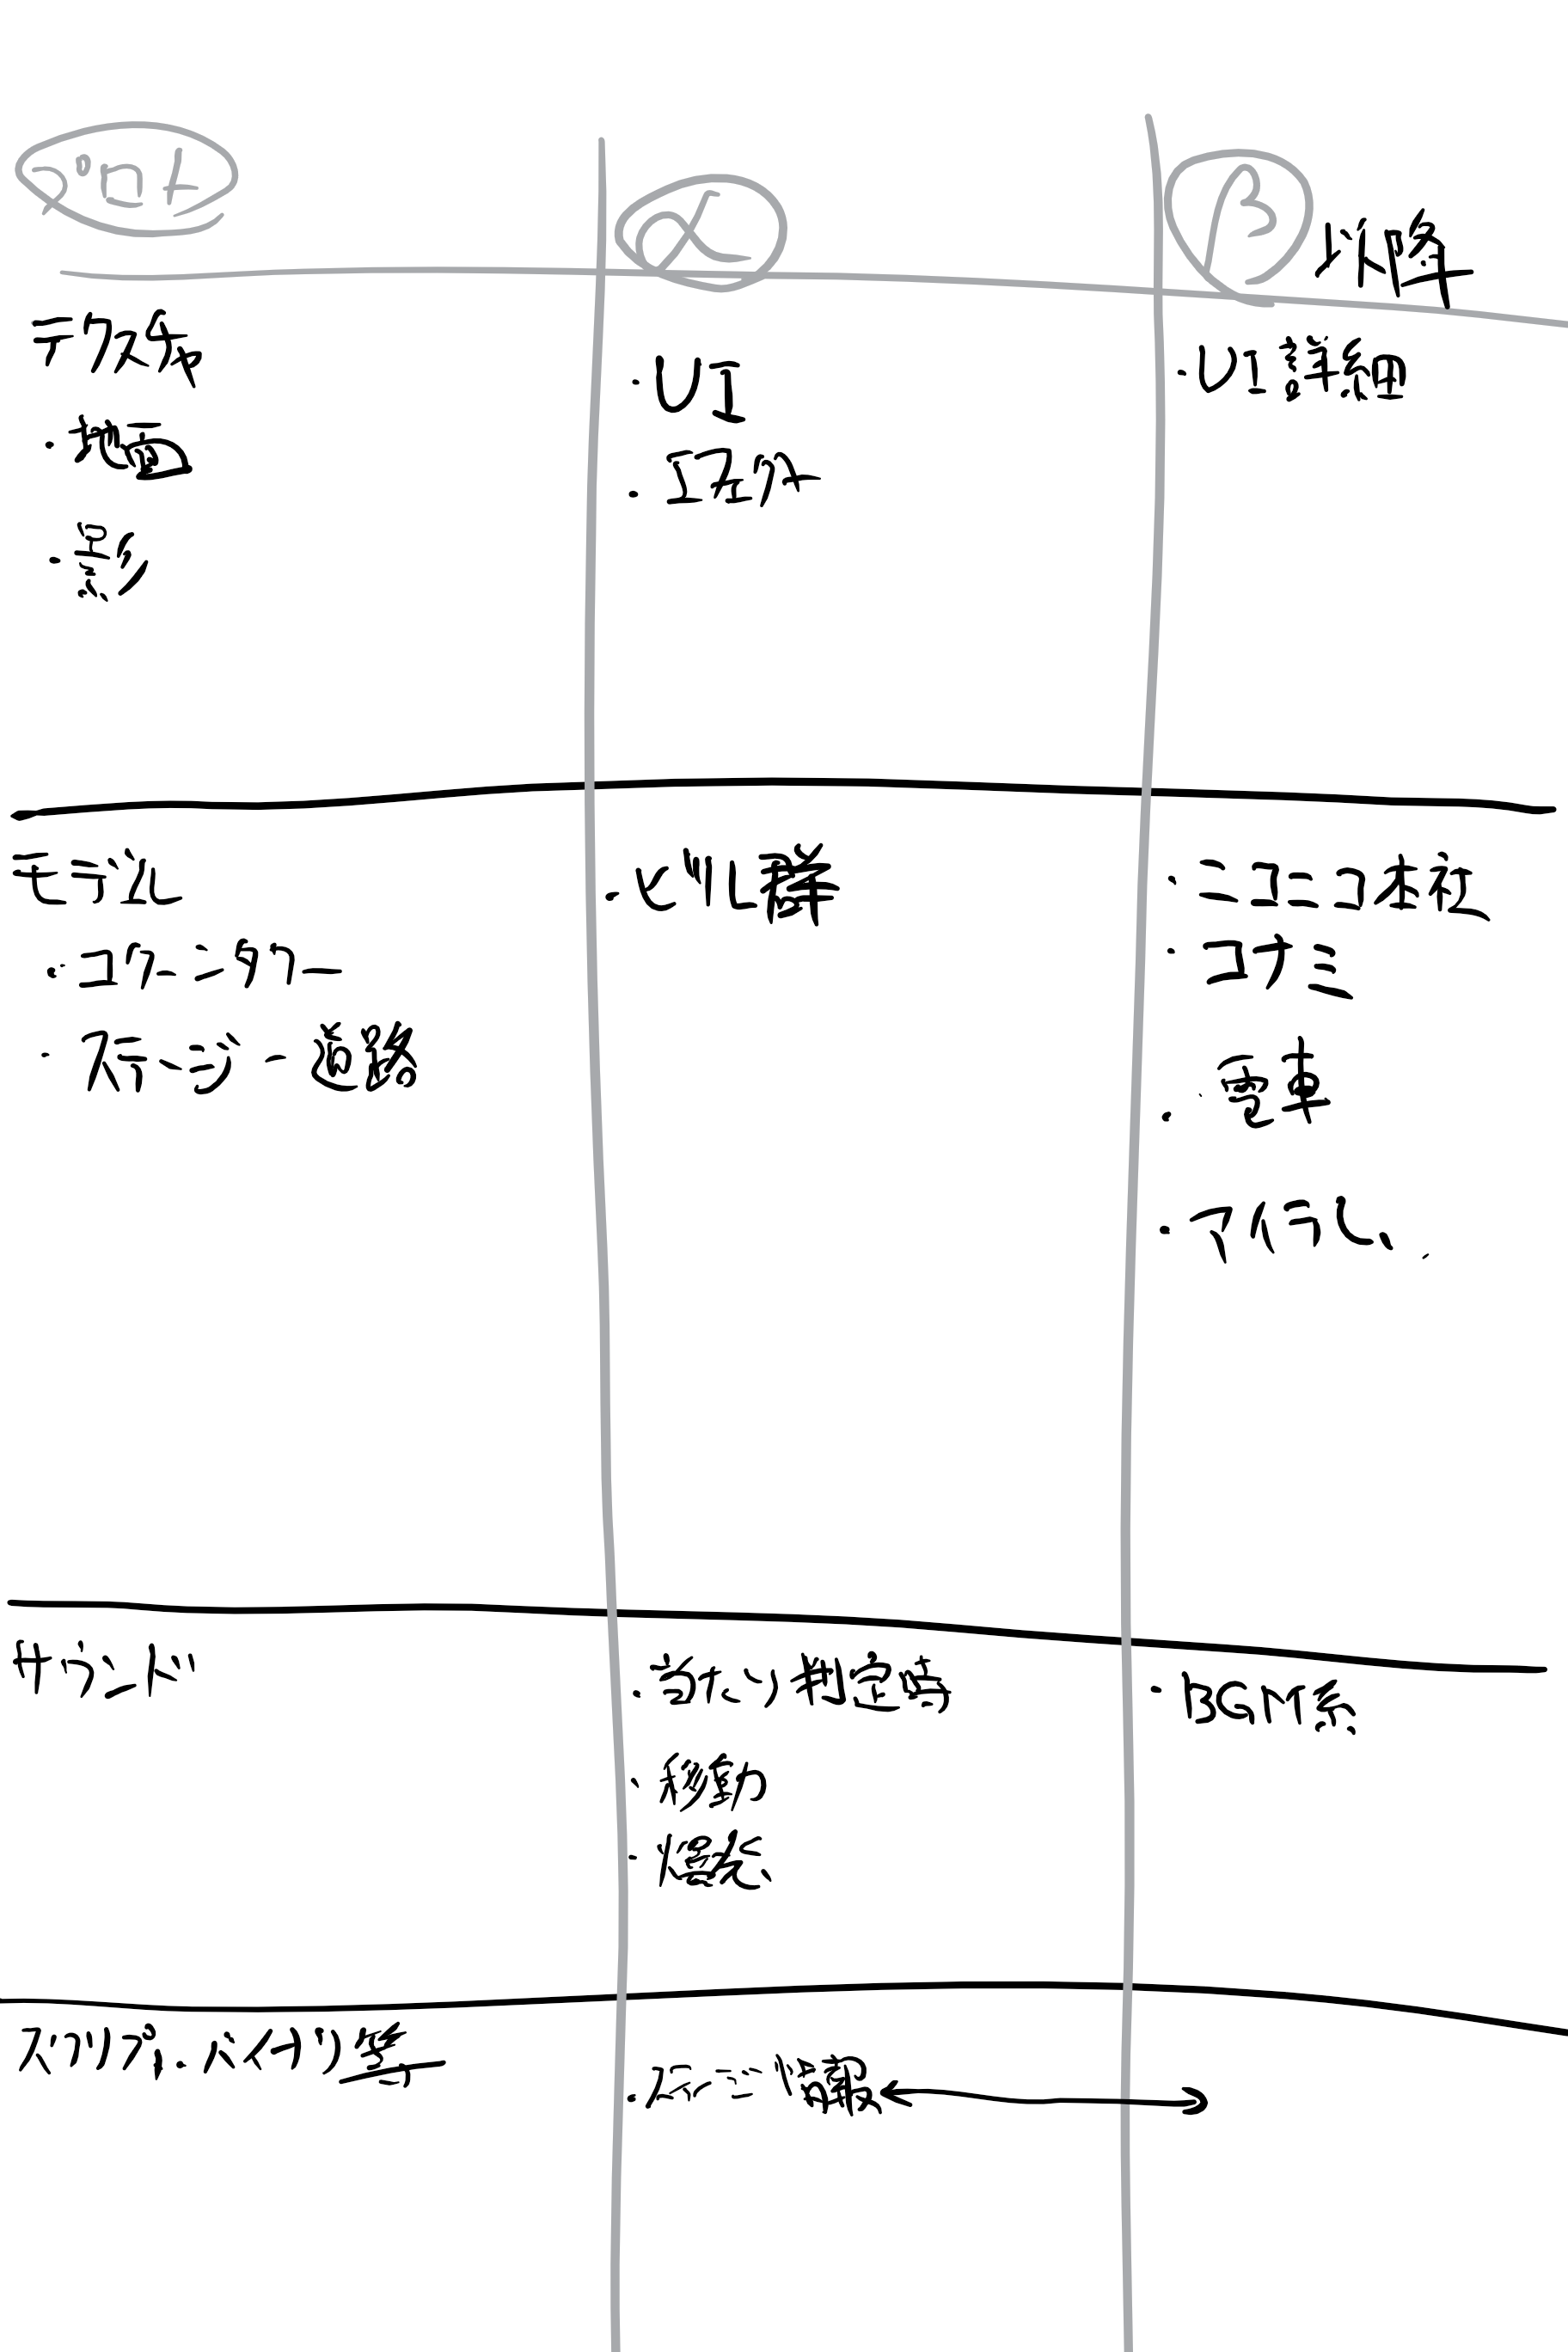 プロト
α
β以降
テクスチャ
・地面
・影
・UI
・エフェクト
・UI詳細
モデル
・コクーンタワー
・ステージ - 道路
・ビル群
・ミニユニコ本校
・コナミ
・電車
・アイラし、
サウンド
・移動
・BGM系
スクリプト、バイナリ等
・ダメージ情報